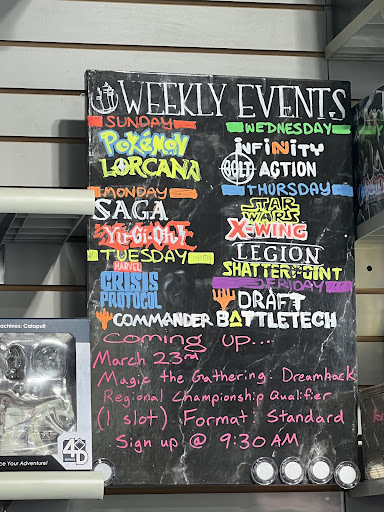 WEEKLY EVENTS
SUNDAY
Pokémon
LORCANA
MONDAY
SAGA
Yu-Gi-Oh!
TUESDAY
MARVEL
CRISIS
PROTOCOL
COMMANDER
WEDNESDAY
iNFiNiTY
BOLT ACTION
THURSDAY
STAR
WARS
X-WING
LEGION
SHATTERPOINT
FRIDAY
DRAFT
BATTLETECH
Coming up...
March 23rd
Magic the Gathering: Dreamhack
Regional Championship Qualifier
(1 slot) Format: Standard
Sign up @ 9:30 AM
achines: Catapult
ce Your Adventure!